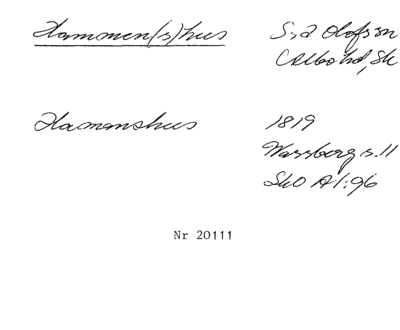 Hammen(s)hus
S. 2 Olofsson
Albo hd, Sk
Hamanshus
1819
Wassberg s. 11
SkO A1:96
Nr 20111